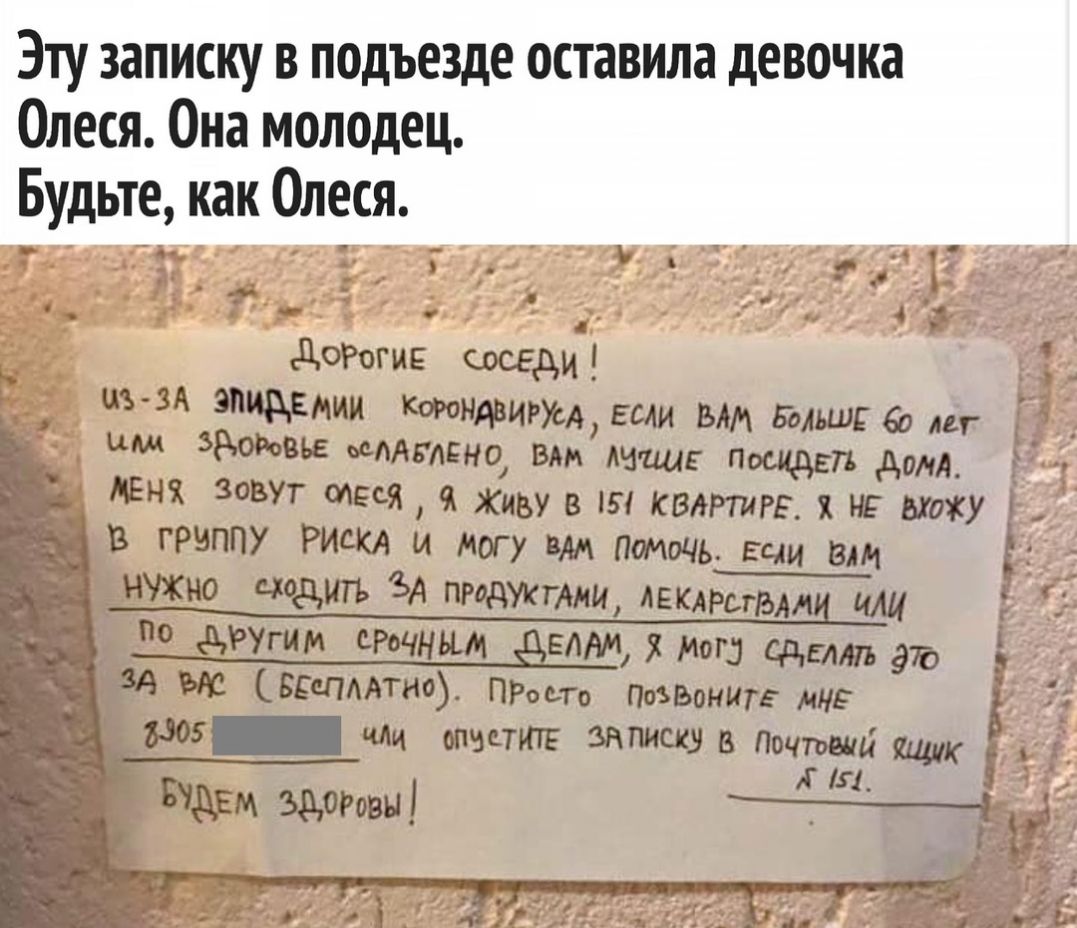 Эту записку в подъезде оставила девочка
Олеся. Она молодец.
Будьте, как Олеся.
ДОРОГИЕ СОСЕДИ!
ИЗ-ЗА ЭПИДЕМИИ КОРОНАВИРУСА, ЕСЛИ ВАМ БОЛЬШЕ 60 ЛЕТ
ИЛИ ЗДОРОВЬЕ ОСЛАБЛЕНО, ВАМ ЛУЧШЕ ПОСИДЕТЬ ДОМА.
МЕНЯ ЗОВУТ ОЛЕСЯ, Я ЖИВУ В 151 КВАРТИРЕ. Я НЕ ВХОЖУ
В ГРУППУ РИСКА И МОГУ ВАМ ПОМОЧЬ. ЕСЛИ ВАМ
НУЖНО СХОДИТЬ ЗА ПРОДУКТАМИ, ЛЕКАРСТВАМИ ИЛИ
ПО ДРУГИМ СРОЧНЫМ ДЕЛАМ, Я МОГУ СДЕЛАТЬ ЭТО
ЗА ВАС (БЕСПЛАТНО). ПРОСТО ПОЗВОНИТЕ МНЕ
8905 ИЛИ ОПУСТИТЕ ЗАПИСКУ В ПОЧТОВЫЙ ЯЩИК
№ 151.
БУДЕМ ЗДОРОВЫ!